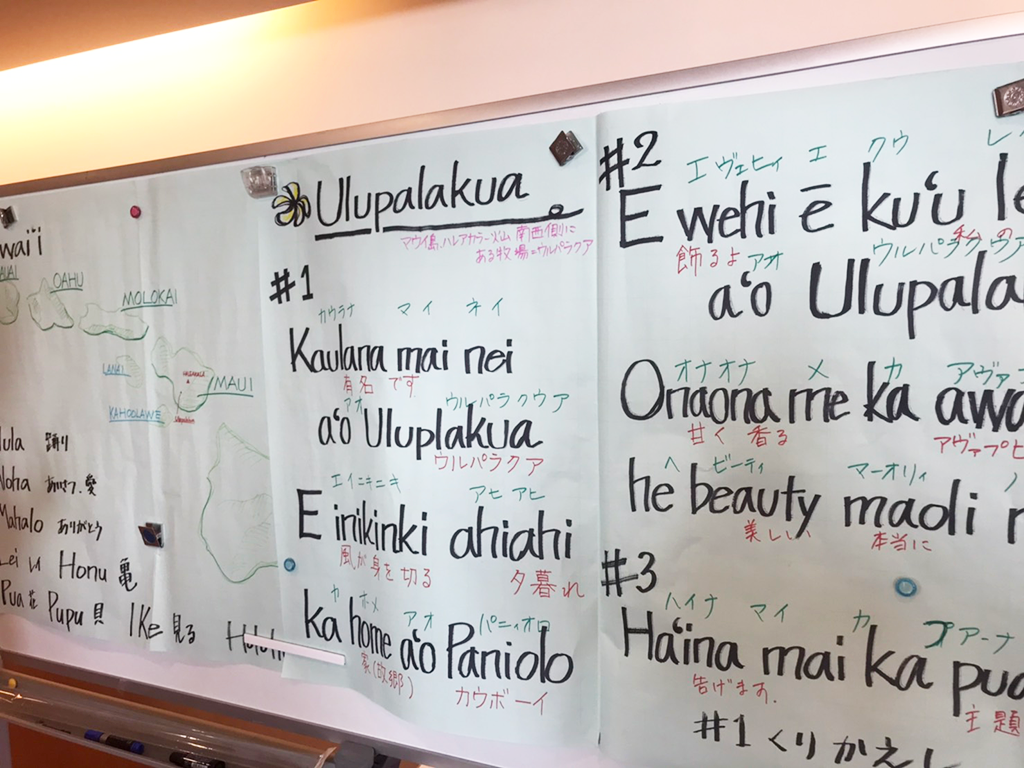 wai'i
OAHU
MOLOKAI
LANAI
MAUI
KAHOOLAWE
踊り
あいさつ、愛
Mahalo ありがとう
Lei レイ Honu 亀
Pua 花 Pupu 貝 IKe 見る
Ulupalakua
マウイ島、ハレアカラー火山、南西側に
ある牧場=ウルパラクア
#1
カウラナ マイ ネイ
Kaulana mai nei
有名です
アオ ウルパラクウア
a'o Uluplakua
ウルパラクア
エ イニキニキ アヒ アヒ
E inikinki ahiahi
風が身を切る 夕暮れ
カ ホメ アオ パニィオロ
ka home a'o Paniolo
家(故郷) カウボーイ
#2
エ ヴェヒィ エ クウ レイ
E wehi ē ku'u le
飾るよ 私の
アオ ウルパラク
a'o Ulupala
オナオナ メ カ アヴァ
Onaona me ka awa
甘く香る アヴァプヒ
ヘ ビーティ マーオリィ
he beauty maoli
美しい 本当に
#3
ハイナ マイ カ プアーナ
Ha'ina mai ka pua
告げます. 主題
#1 くりかえし